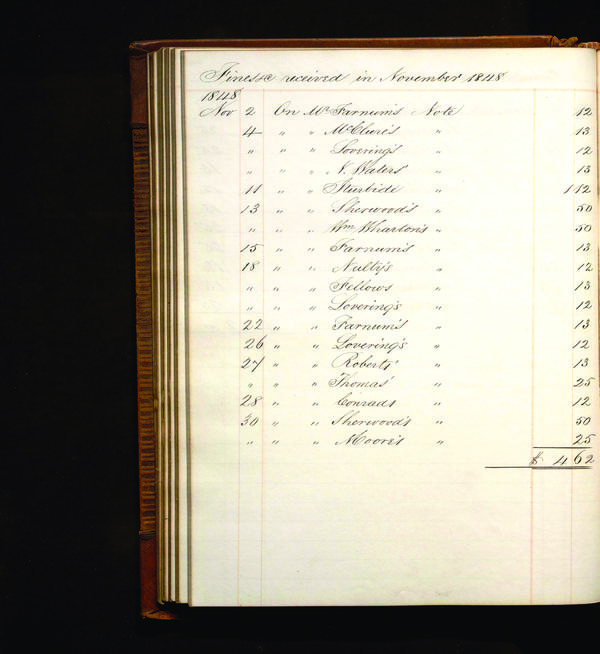 Fines &c received in November 1848
1848
Nov 2 On Mr Farnum's Note 12
4 " " McClure's " 13
" " " Lovering's " 12
" " " N. Waters' " 13
11 " " Iturbide " 1 12
13 " " Sherwood's " 50
" " " Wm Wharton's " 50
15 " " Farnum's " 13
18 " " Nulty's " 12
" " " Fellows " 13
" " " Lovering's " 12
22 " " Farnum's " 13
26 " " Lovering's " 12
27 " " Roberts' " 13
" " " Thomas' " 25
28 " " Conrads " 12
30 " " Sherwood's " 50
" " " Moore's " 25
$ 4 62